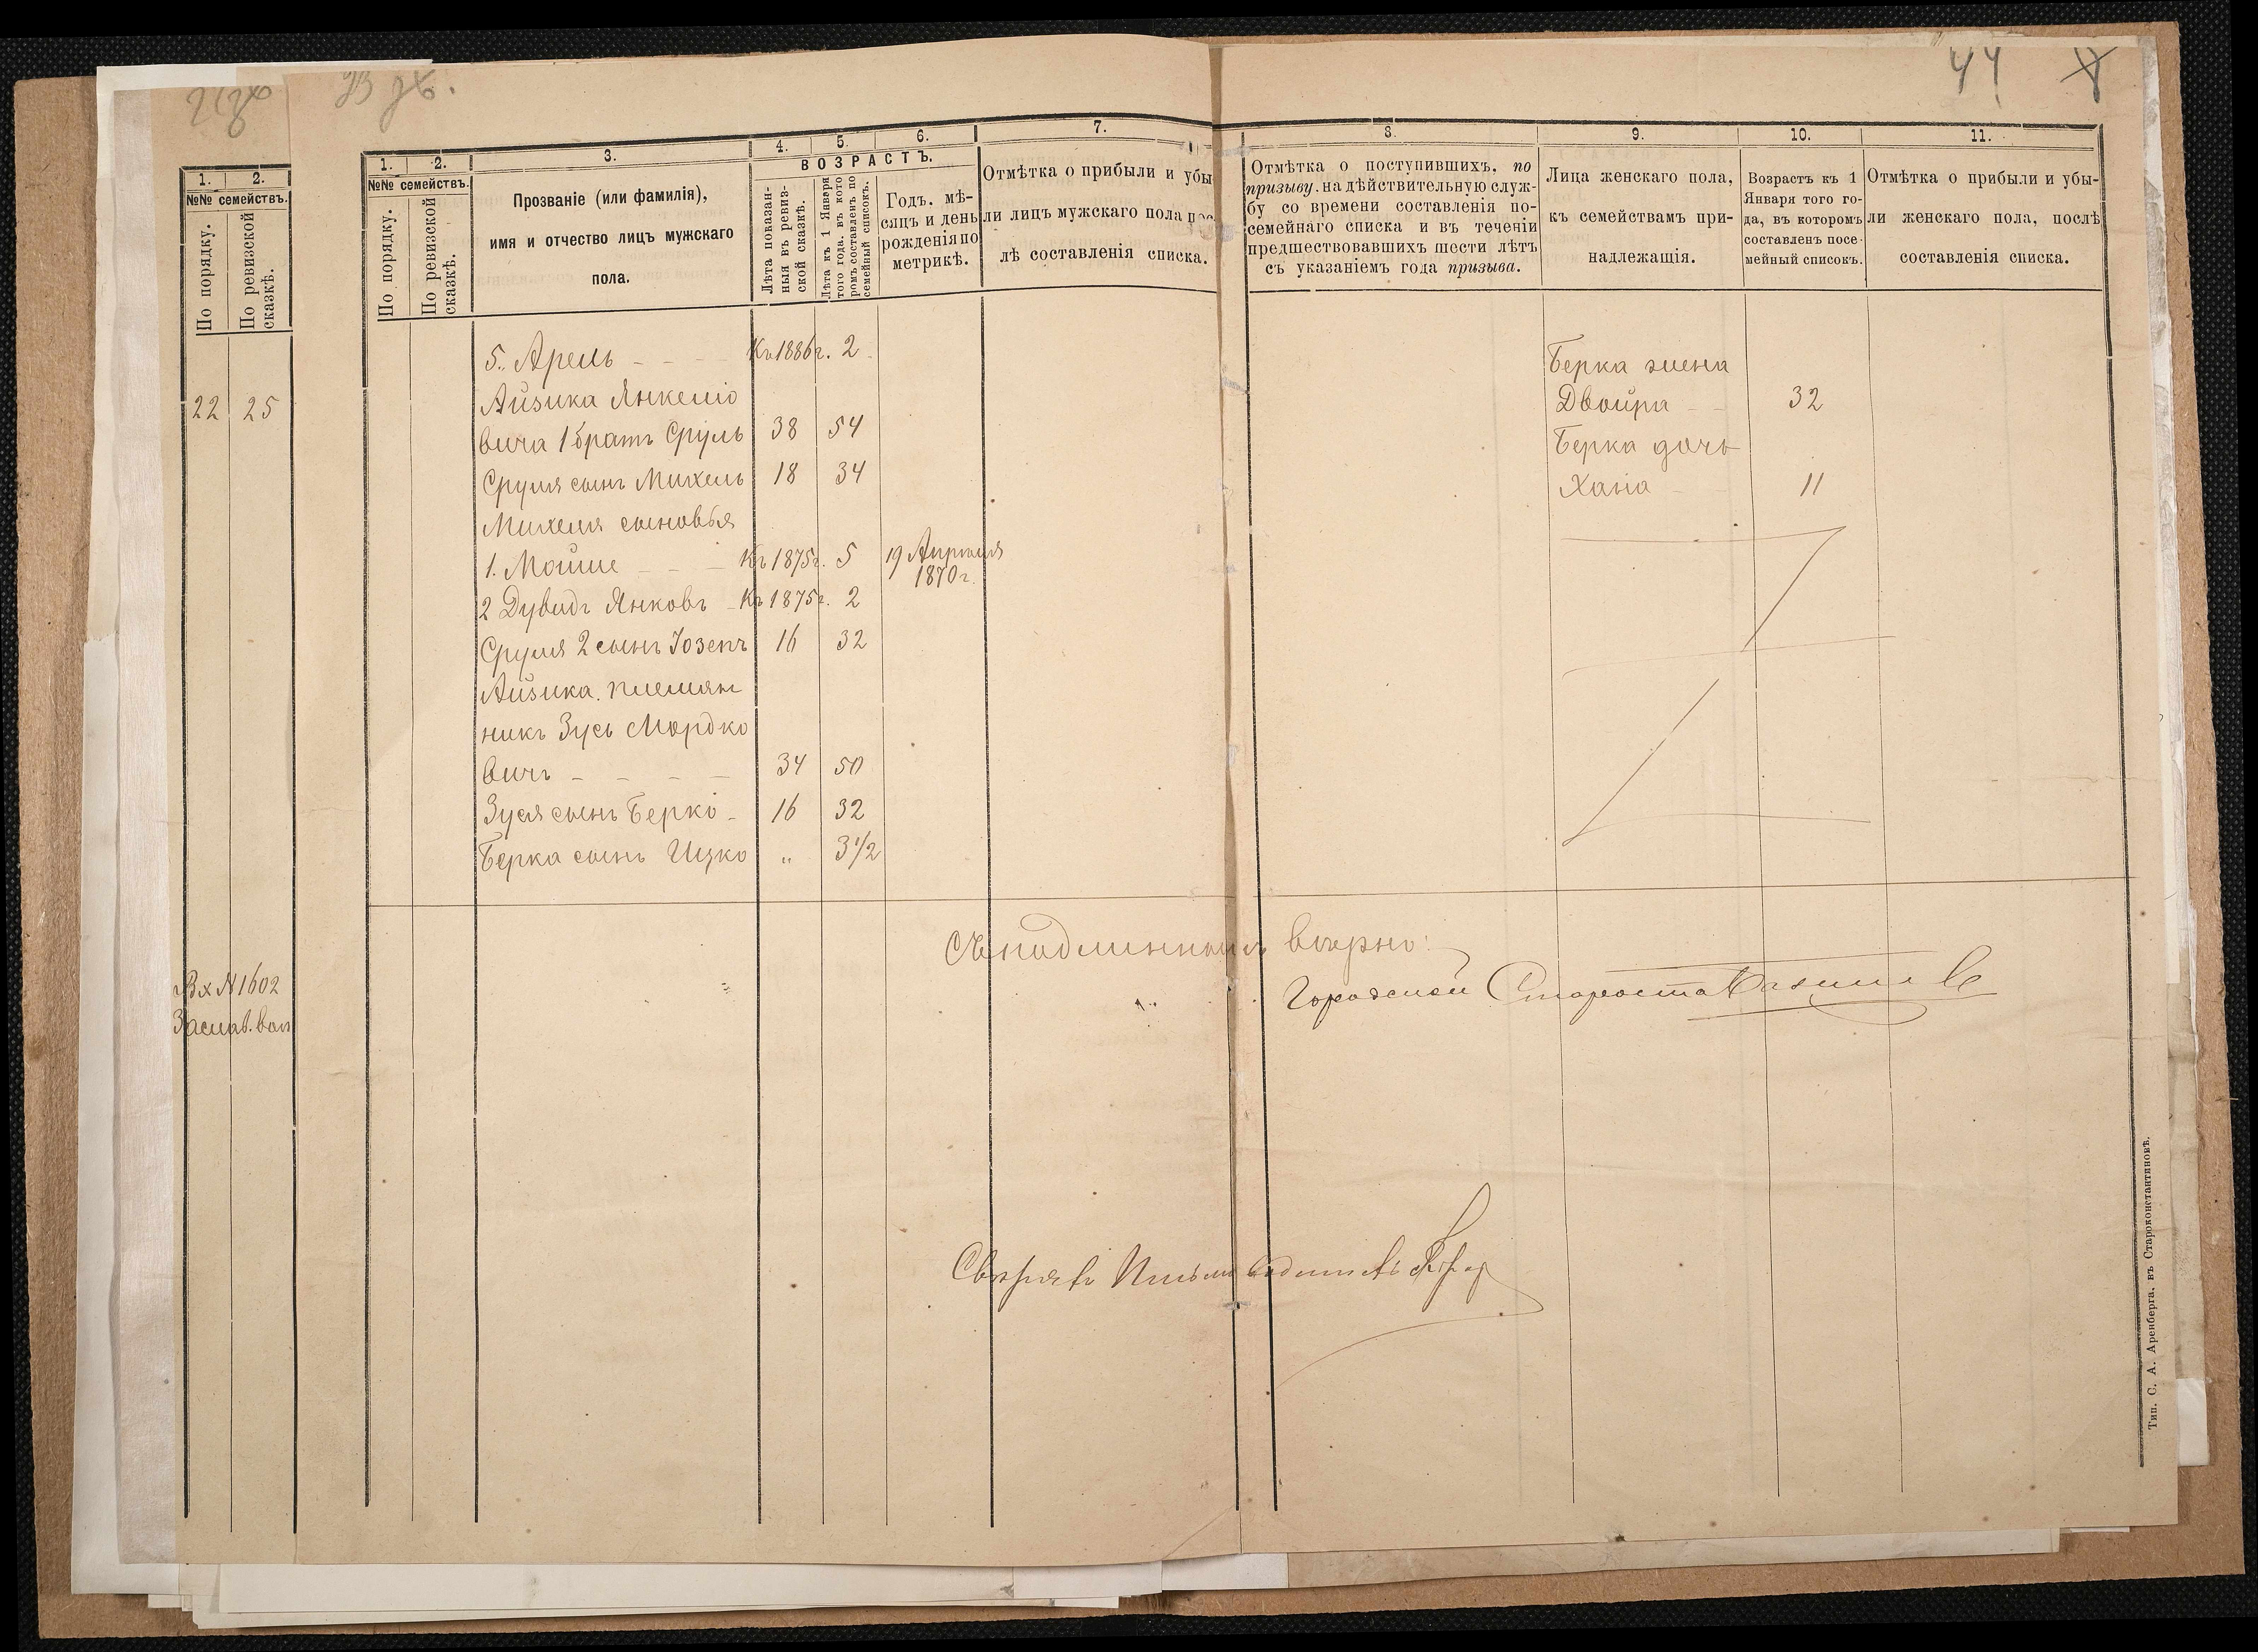 44
1. 2.
№№ семействъ.
По порядку.
По ревизской сказкѣ.
22 25
Вх N 1602
Заслав. вол
1. 2. 3. 4. 5. 6. 7.
№№ семействъ.
По порядку.
По ревизской
сказкѣ.
Прозваніе (или фамилія),
имя и отчество лицъ мужскаго
пола.
ВОЗРАСТЪ.
Лѣта показан-
ныя въ ревиз-
ской сказкѣ.
Лѣта къ 1 Января
того года, въ кото
ромъ составленъ по
семейный списокъ.
Годъ, мѣ-
сяцъ и день
рожденія по
метрикѣ.
Отмѣтка о прибыли и убы
ли лицъ мужскаго пола пос
лѣ составленія списка.
5. Арель - - - Къ 1886 г. 2
Айзика Янкеліо
вича 1 братъ Сруль 38 54
Сруля сынъ Михель 18 34
Михеля сыновья
1. Мойше - - - Къ 1875 г. 5 19 Апрѣля
1870 г.
2 Дувидъ Янковъ - Къ 1875 г. 2
Сруля 2 сынъ Іозепъ 16 32
Айзика племян
никъ Зусь Мордко
вичъ - - - - 34 50
Зуся сынъ Берко - 16 32
Берка сынъ Ицко " 3 1/2
8. 9. 10. 11.
Отмѣтка о поступившихъ, по
призыву, на дѣйствительную служ-
бу со времени составленія по-
семейнаго списка и въ теченіи
предшествовавшихъ шести лѣтъ
съ указаніемъ года призыва.
Лица женскаго пола,
къ семействамъ при-
надлежащія.
Возрастъ къ 1
Января того го-
да, въ которомъ
составленъ посе-
мейный списокъ.
Отмѣтка о прибыли и убы-
ли женскаго пола, послѣ
составленія списка.
Берка жена
Двойра - - 32
Берка дочь
Хана - - 11
Съ подлиннымъ вѣрно:
Городской Староста
Свѣрялъ Письмоводитель
Тип. С. А. Аренберга, въ Староконстантиновѣ.